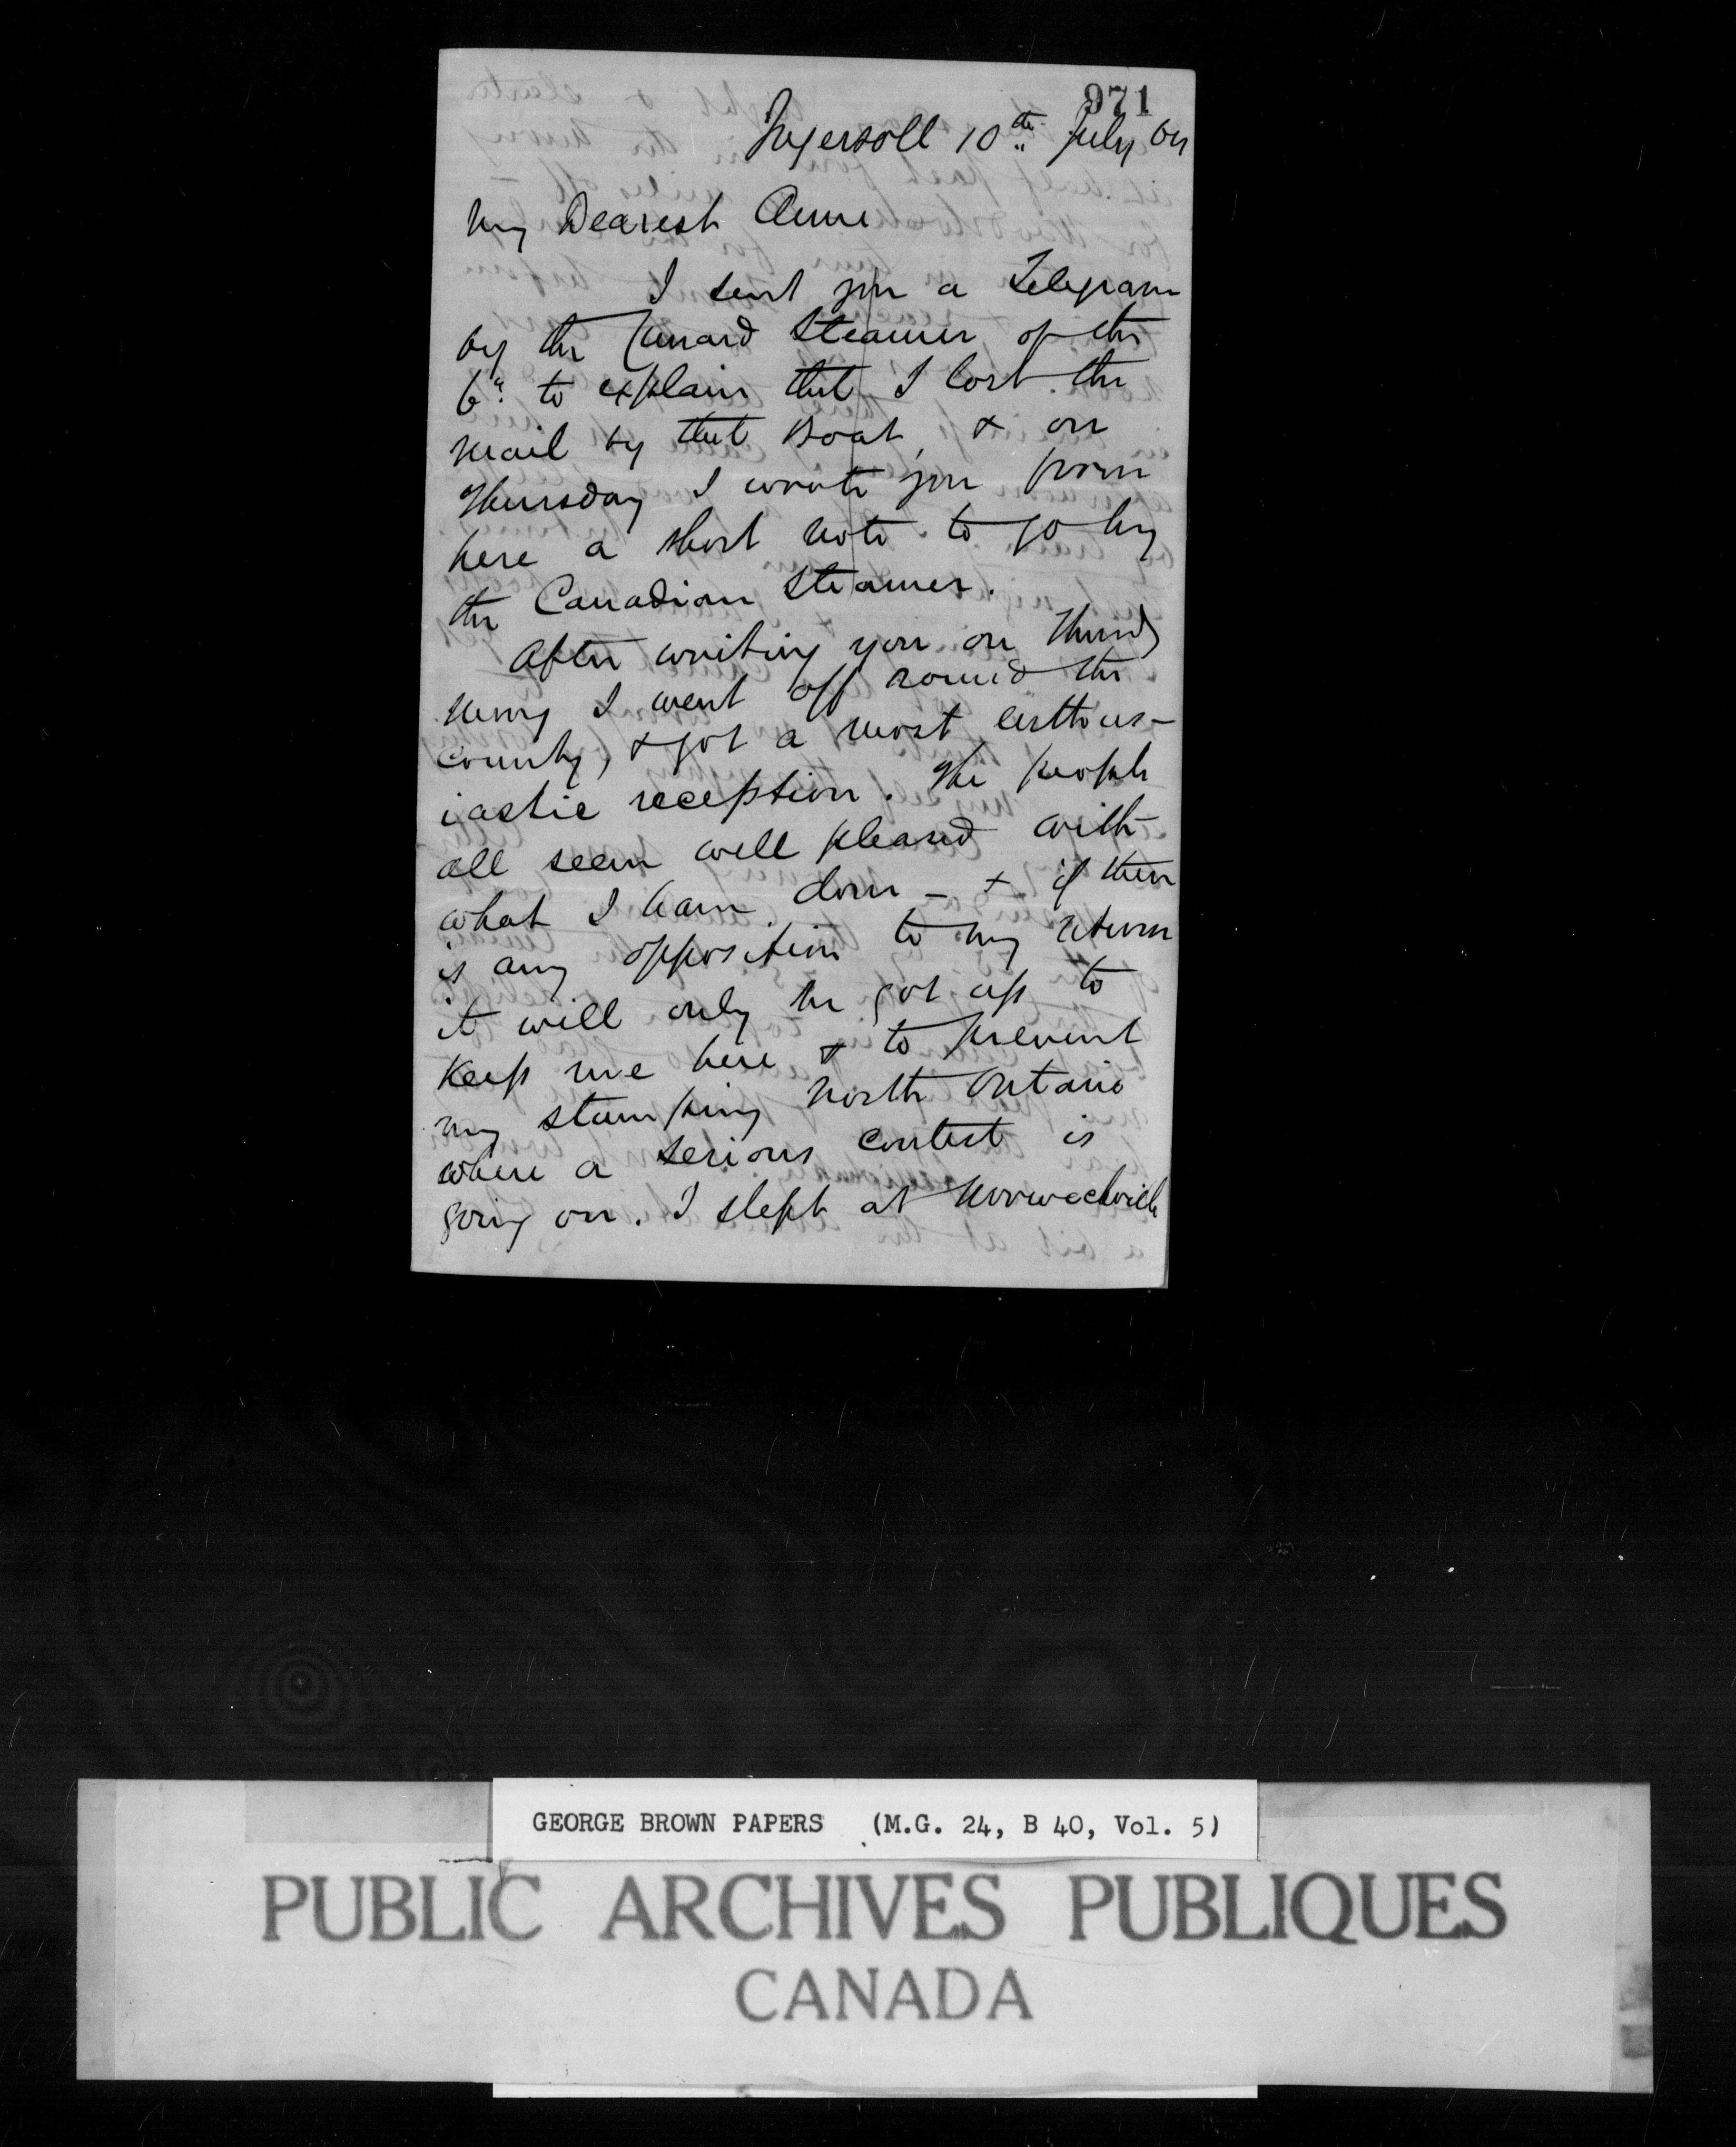 971
Ingersoll 10th July 64
My Dearest Anne
I sent you a Telegram
by the Cunard Steamer of the
6" to explain that I lost the
mail by that Boat, & on
Thursday I wrote you from
here a short note to go by
the Canadian Steamer.
After writing you on Thursd
morng I went off round the
county, & got a most enthus-
iastic reception. The people
all seem well pleased with
what I have done - & if there
is any opposition to my return
it will only be got up to
keep me here & to prevent
my stumping North Ontario
where a serious contest is
going on. I slept at Norwichville
GEORGE BROWN PAPERS (M.G. 24, B 40, Vol. 5)
PUBLIC ARCHIVES PUBLIQUES
CANADA